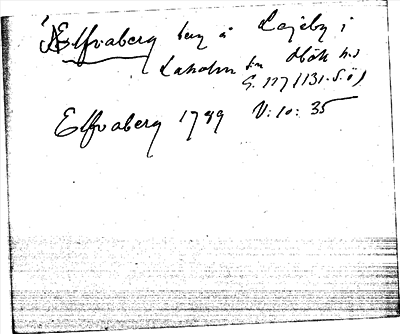 Elfvaberg berg å Lajeby i
Laholm
G. 117 (131. S. Ö)
Elfvaberg 1789 V: 10: 35